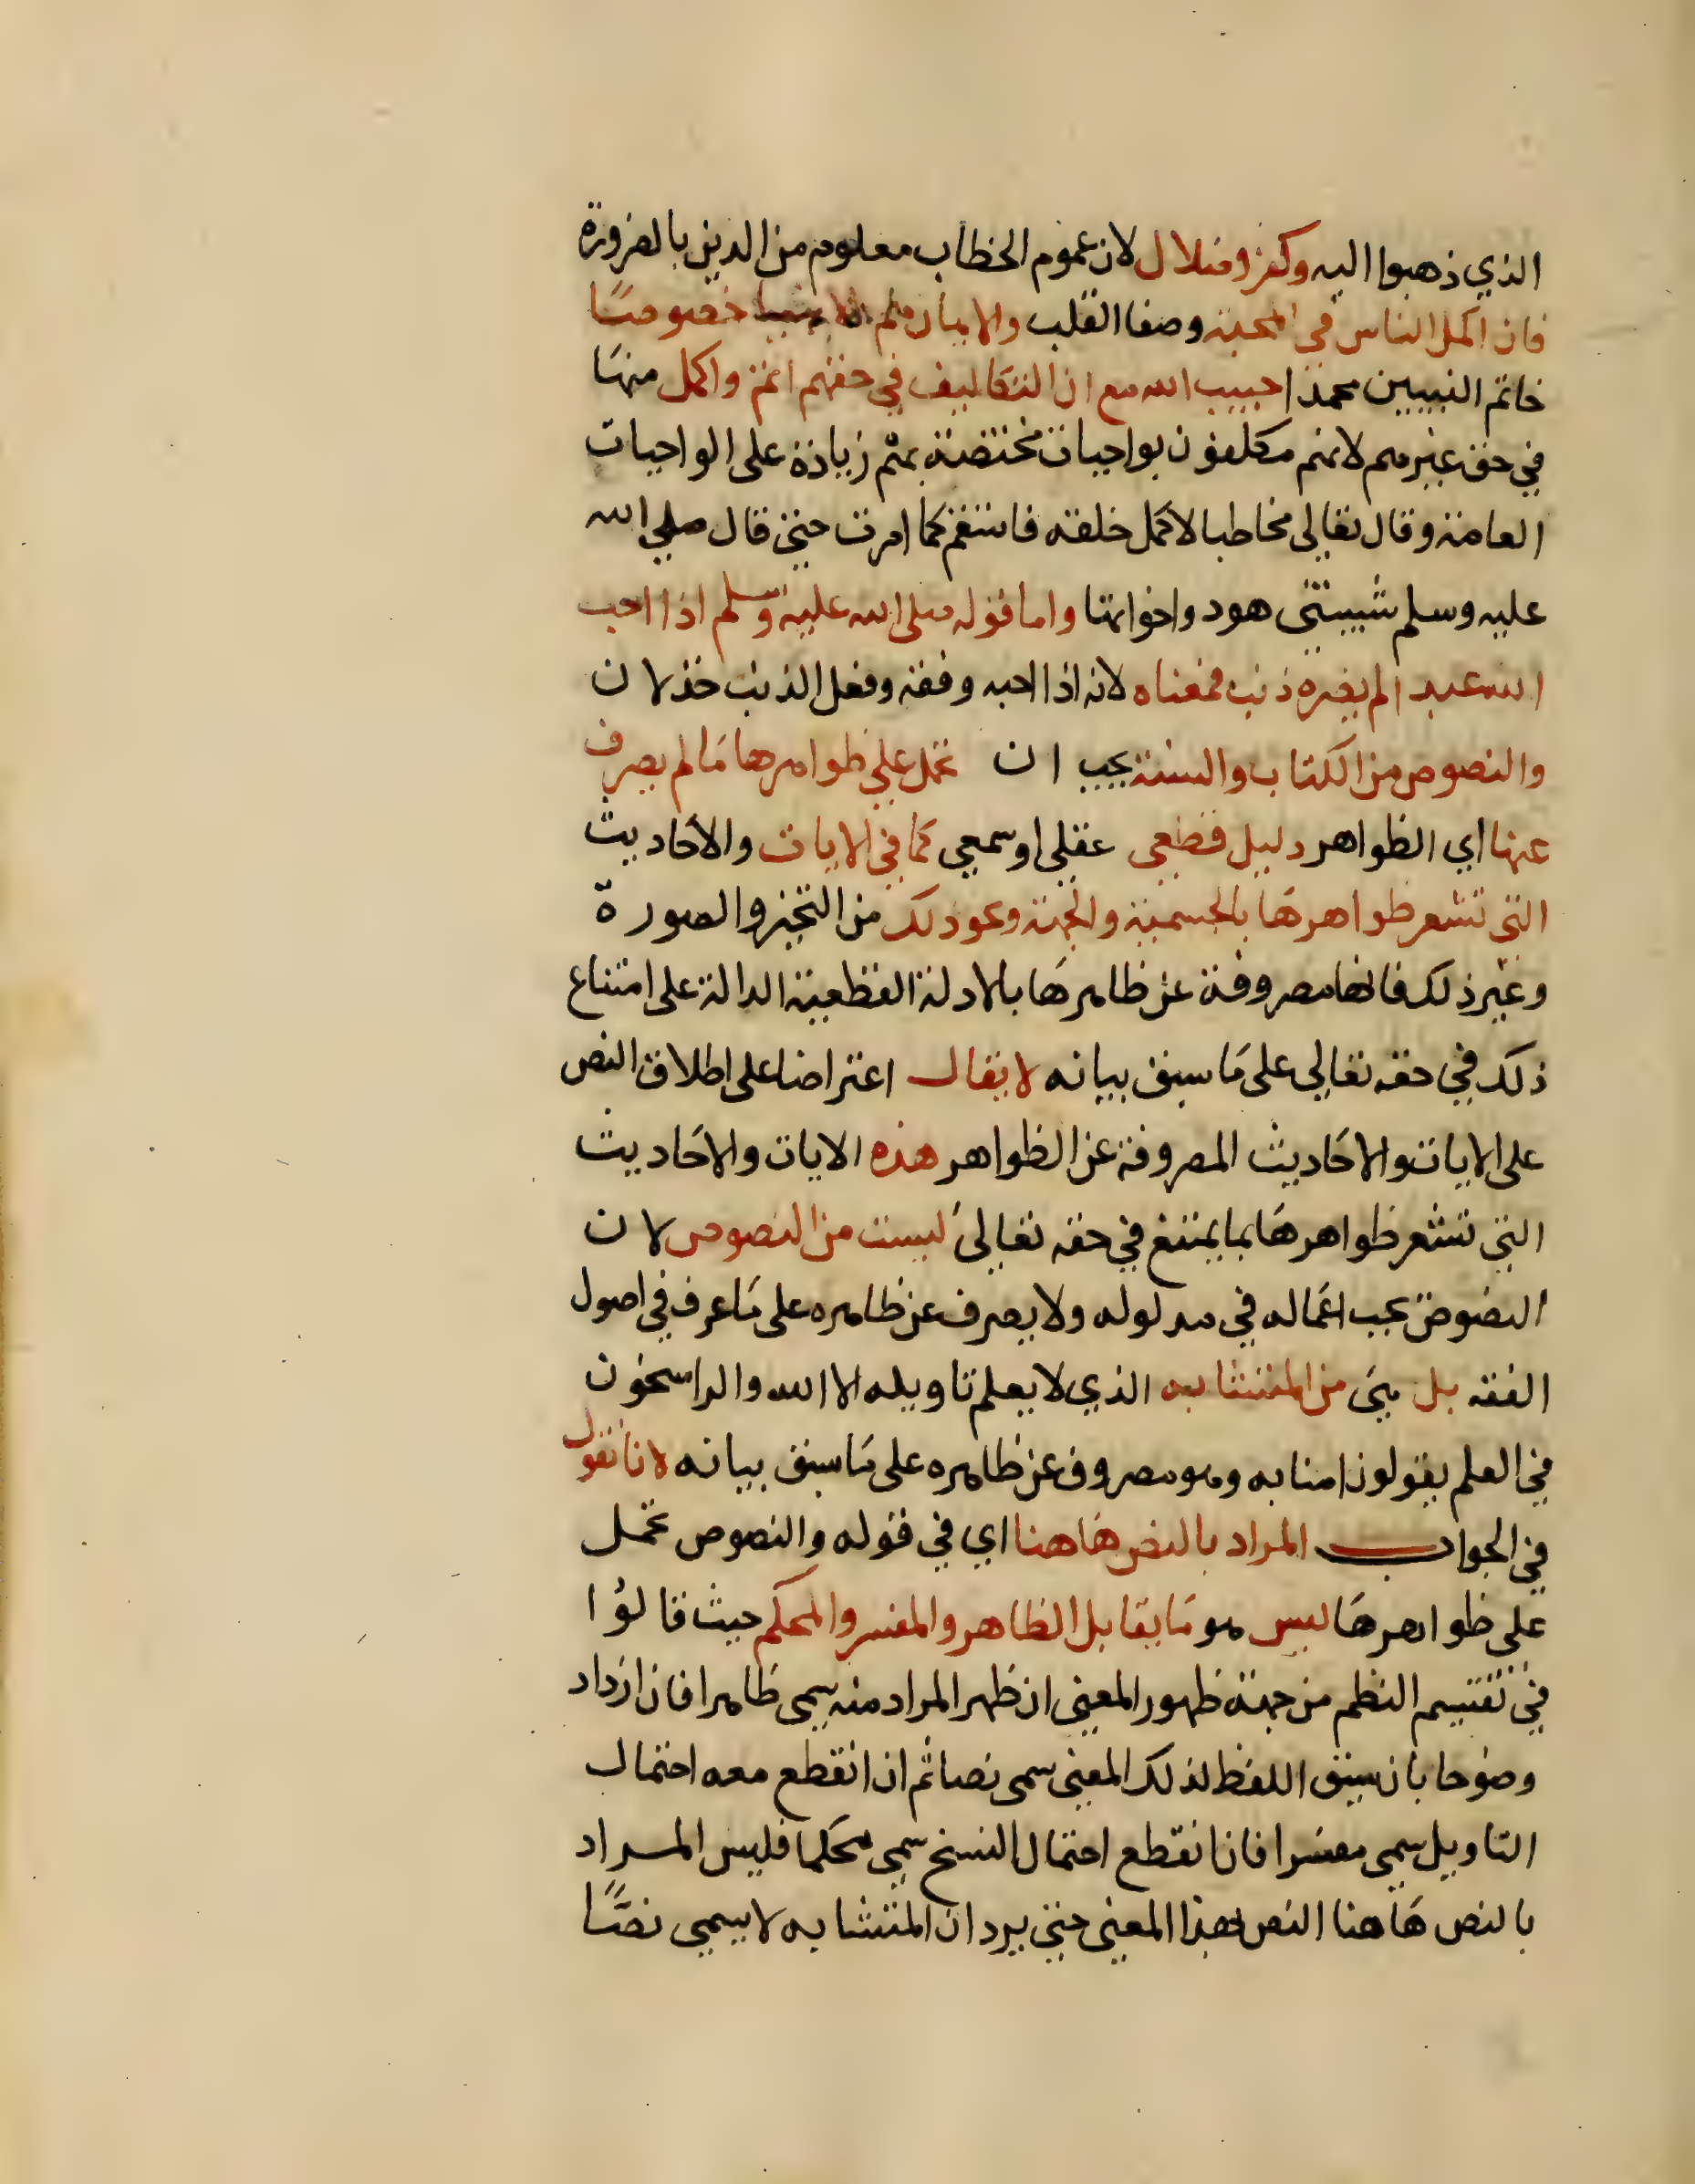 الذي ذهبوا اليه وكفر وضلال لان عموم الخطاب معلوم من الدين بالضرورة
فان اكمل الناس في المحبة وصفا القلب والايمان هم الانبيا خصوصًا
خاتم النبيين محمد احبيب الله مع ان التكاليف في حقهم اتم واكمل منهَا
في حق غيرهم لانهم مكلفون بواجبات مختصة بهم زيادة على الواجبات
العامة وقال تعالى مخاطبا لاكمل خلقه فاستقم كما امرت حتى قال صلى الله
عليه وسلم شيبتني هود واخواتها واما قوله صلى الله عليه وسلم اذا احب
الله عبدا لم يضره ذنب فمعناه لانه اذا احبه وفقه وفعل الذنب خذلان
والنصوص من الكتاب والسنة يجب ان تحمل على ظواهرها مَا لم يصرف
عنها اي الظواهر دليل قطعى عقلى او سمعى كمَا في الايات والاحَاديث
التى تشعر ظواهرهَا بالجسمية والجهة ونحو ذلك من التحيز والصورة
وغير ذلك فانها مصروفة عن ظاهرهَا بالادلة القطعية الدالة على امتناع
ذلك في حقه تعالى على مَا سبق بيانه لا يقال اعتراضا على اطلاق النص
على الايات والاحَاديث المصروفة عن الظواهر هذه الايات والاحَاديث
التى تشعر ظواهرهَا بما يمتنع في حقه تعالىَ ليست من النصوص لان
النصوص يجب اعمَاله في مدلوله ولا يصرف عن ظاهره على مَا عرف في اصول
الفقه بل هىَ من المتشابه الذي لا يعلم تاويله الا الله والراسخون
في العلم يقولون امنا به وهو مصروف عن ظاهره على مَا سبق بيانه لانا نقول
في الجواب المراد بالنص هَاهنا اي في قوله والنصوص تحمل
على ظواهرهَا ليس هو مَا يقابل الظاهر والمفسر والمحكم حيث قالوُا
في تقسيم النظم من جهة ظهور المعنى ان ظهر المراد منه يسمى ظاهرا فان ازداد
وضوحا بان سيق اللفظ لذلك المعنى سمى نصا ثم ان انقطع معه احتمال
التاويل سمى مفسرا فان انقطع احتمال النسخ سمى محكما فليس المراد
بالنص هَاهنا النص بهذا المعنى حتى يرد ان المتشابه لا يسمى نصًّا